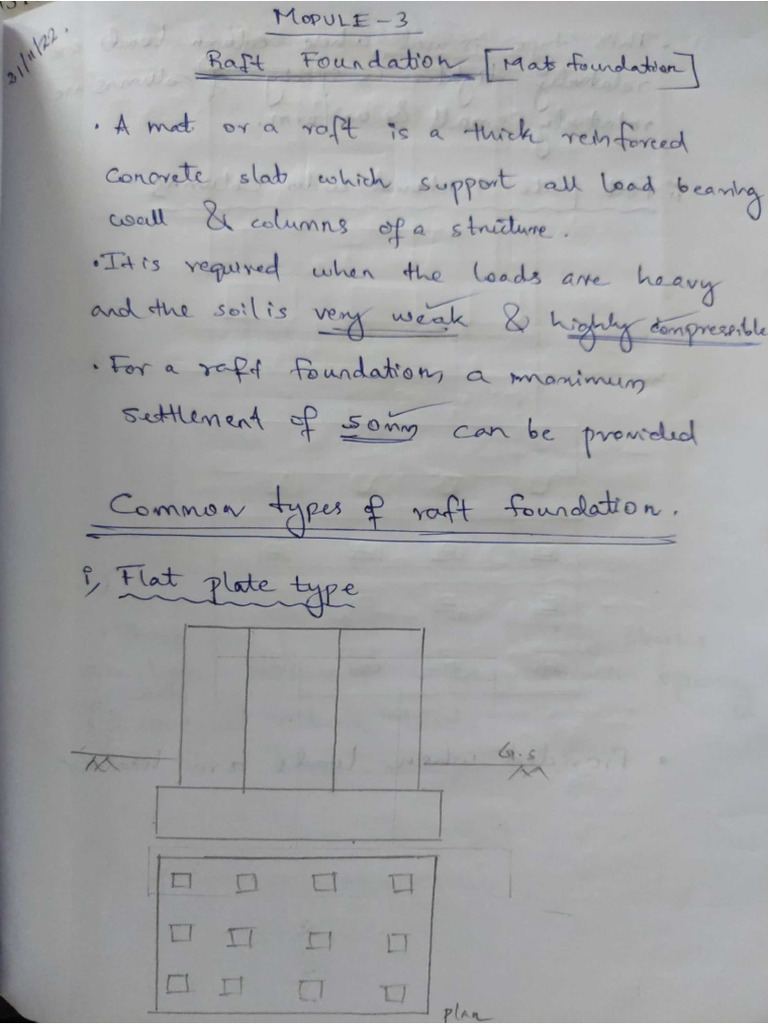 21/11/22.
MODULE - 3
Raft Foundation [Mat foundation]
• A mat or a raft is a thick reinforced
concrete slab which support all load bearing
wall & columns of a structure.
• It is required when the loads are heavy
and the soil is very weak & highly compressible
• For a raft foundation, a maximum
settlement of 50mm can be provided
Common types of raft foundation.
i, Flat plate type
G.S
plan